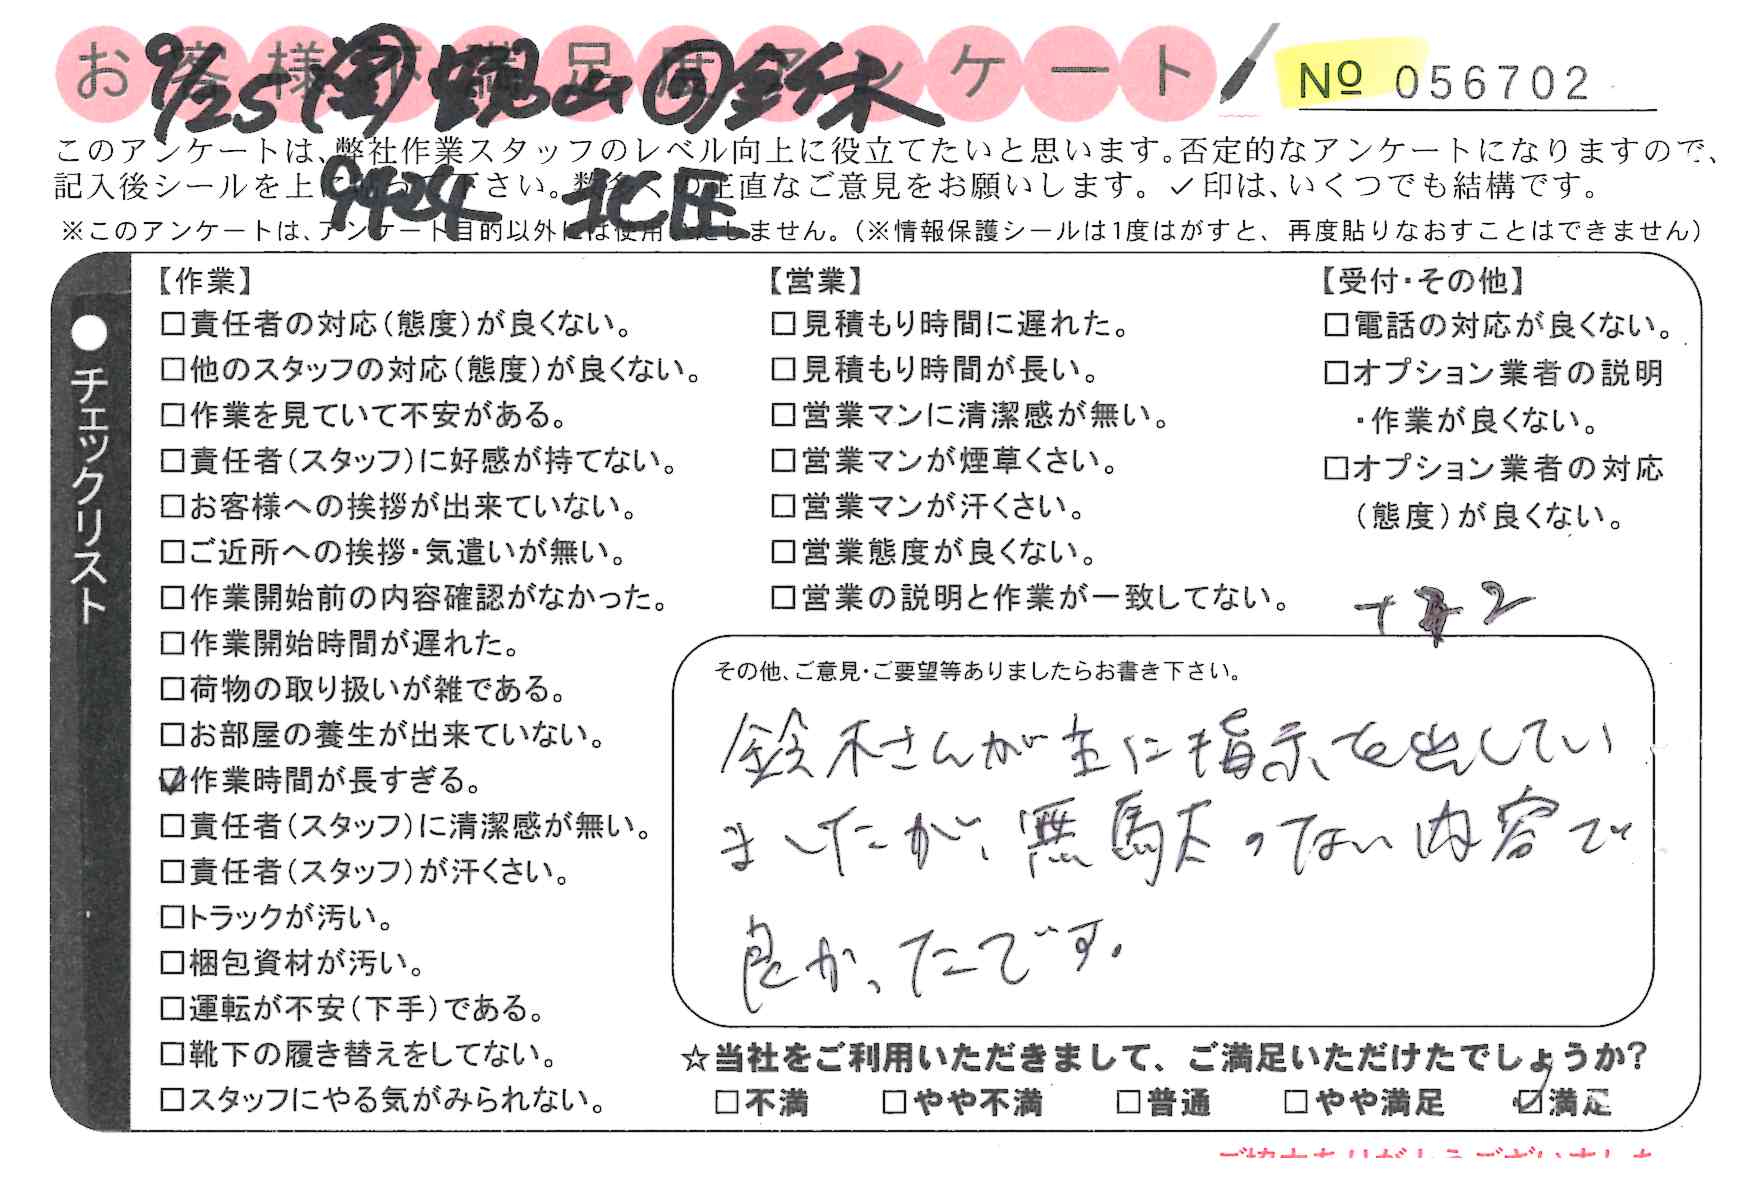 お客様不満足度アンケート
9/25(金) 鶴山 回鈴木
№ 056702
このアンケートは、弊社作業スタッフのレベル向上に役立てたいと思います。否定的なアンケートになりますので、
記入後シールを上に貼って下さい。数多くの正直なご意見をお願いします。✓印は、いくつでも結構です。
9424 北区
※このアンケートは、アンケート目的以外には使用いたしません。(※情報保護シールは1度はがすと、再度貼りなおすことはできません)
●チェックリスト
【作業】
□責任者の対応(態度)が良くない。
□他のスタッフの対応(態度)が良くない。
□作業を見ていて不安がある。
□責任者(スタッフ)に好感が持てない。
□お客様への挨拶が出来ていない。
□ご近所への挨拶・気遣いが無い。
□作業開始前の内容確認がなかった。
□作業開始時間が遅れた。
□荷物の取り扱いが雑である。
□お部屋の養生が出来ていない。
☑作業時間が長すぎる。
□責任者(スタッフ)に清潔感が無い。
□責任者(スタッフ)が汗くさい。
□トラックが汚い。
□梱包資材が汚い。
□運転が不安(下手)である。
□靴下の履き替えをしてない。
□スタッフにやる気がみられない。
【営業】
□見積もり時間に遅れた。
□見積もり時間が長い。
□営業マンに清潔感が無い。
□営業マンが煙草くさい。
□営業マンが汗くさい。
□営業態度が良くない。
□営業の説明と作業が一致してない。
【受付・その他】
□電話の対応が良くない。
□オプション業者の説明
・作業が良くない。
□オプション業者の対応
(態度)が良くない。
+2
その他、ご意見・ご要望等ありましたらお書き下さい。
鈴木さんが主に指示を出してい
ましたが、無駄のない内容で
良かったです。
☆当社をご利用いただきまして、ご満足いただけたでしょうか?
□不満 □やや不満 □普通 □やや満足 ☑満足
ご協力ありがとうございました